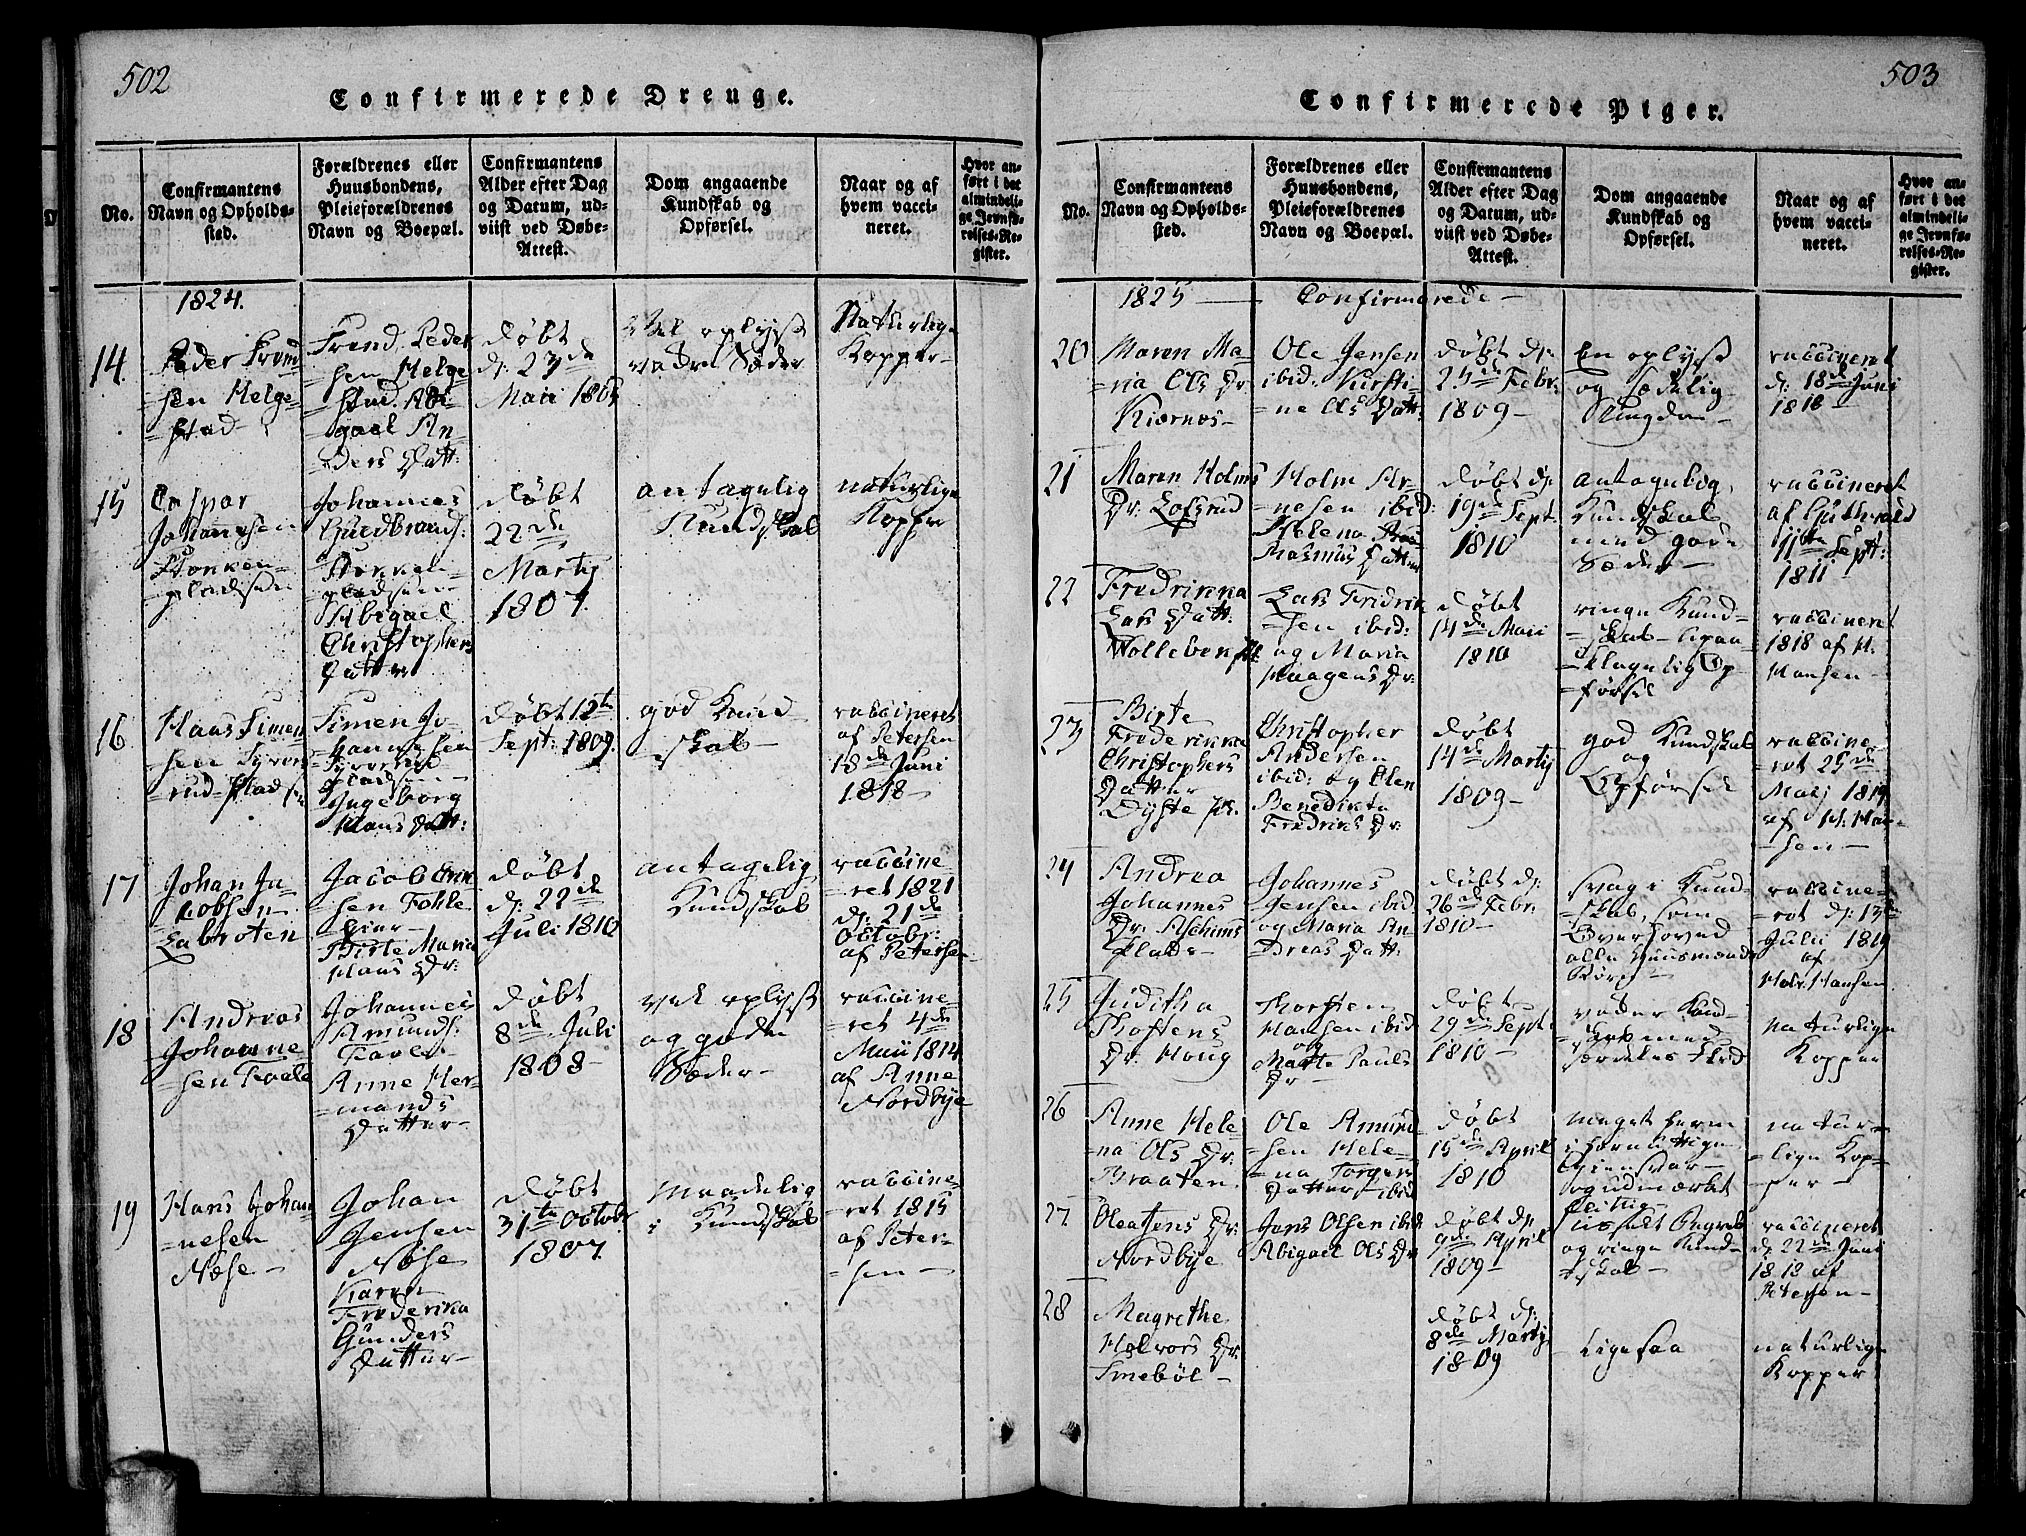 502
Confirmerede Drenge.
No.
Confirmantens
Navn og Opholds-
sted.
Forældrenes eller
Huusbondens,
Pleieforældrenes
Navn og Boepæl.
Confirmantens
Alder efter Dag
og Datum, ud-
viist ved Døbe-
Attest.
Dom angaaende
Kundskab og
Opførsel.
Naar og af
hvem vacci-
neret.
Hvor an-
ført i det
almindeli-
ge Jevnfø-
relses-Re-
gister.
1824.
14
Peder Trond
=sen Helge=
=stad
Trond Peder
=sen Helge
=stad. Abi
=gael An=
=ders Datt:
døbt
d: 23de
Maii
Vel oplyst
Sæder
Naturlige
Kopper
15
Caspar
Johannesen
=pladsen
Johannes
Guldbrands:
=pladsen
Abigael
Christophers
Datter
døbt
22de
Martij
1807
antagelig
Kundskab
naturlige
Kopper
16
Hans Simen
=sen
Simen Jo=
=hannesen
Ingeborg
Hans Datt:
døbt 12te
Sept: 1809
god Kund
=skab
vaccineret
af Petersen
18de Juni
1818
17
Johan Ja=
=cobsen
Labroten
Jacob
=sen
Birte Maria
Hans Dr:
døbt
d: 22de
Juli 1810
antagelig
Kundskab
vaccine
=ret 1821
d: 21de
Octobr:
af Petersen
18
Andreas
Johanne
=sen
Johannes
Amunds:
Anne Her=
=mands
Datter
døbt
8de Juli
1808
vel oplyst
og gode
Sæder
vaccine=
=ret 4de
Maii 1814
af Anne
Nordbye
19
Hans Johan
=nesen
Næse
Johan
Jensen
Næse
Karen
Frederica
Gunders
Datter
døbt
31te Octobr
1807
Maadelig
Kundskab
vaccine=
=ret 1815
af Peter=
=sen
503
Confirmerede Piger.
No.
Confirmantens
Navn og Opholds-
sted.
Forældrenes eller
Huusbondens,
Pleieforældrenes
Navn og Boepæl.
Confirmantens
Alder efter Dag
og Datum, ud-
viist ved Døbe-
Attest.
Dom angaaende
Kundskab og
Opførsel.
Naar og af
hvem vacci-
neret.
Hvor an-
ført i det
almindeli-
ge Jevnfø-
relses-Re-
gister.
1825 — Confirmerede
20
Maren Ma=
=ria Ols Dr
Kiærnæs
Ole Jensen
ibid: Kirsti=
=ne Ols Datt:
døbt d:
25de Febr:
1809
En oplyst
og sædelig
Ungdom
vaccineret
d: 18de Juni
1818
21
Maren Holms
Dr: Lofsrud
Holm Ar=
=nesen ibid:
Helena
Rasmus Datter
døbt d:
19de Sept.
1810
antagelig
Kundskab
med gode
Sæder
vaccineret
11te Sept:
1811
22
Fredrikka
Lars Datt:
Lars Fridrik
=sen ibid:
og Maria
Haagens Dr:
døbt
14de Maii
1810
ringe Kund=
=skab
=klagelig Op
=førsel
vaccineret
1818 af H.
Hansen
23
Birte
Frederikka
Christophers
Datter
Christopher
Andersen
ibid: og Elen
Benedikta
Fredriks Dr:
døbt
14de Martij
1809
god Kundskab
og
Opførsel
vaccine=
=ret 25de
Maij 1819
af H: Han=
=sen
24
Andrea
Johannes
Dr:
Plads
Johannes
Jensen ibid
og Maria An
dreas Datt:
døbt d:
26de Febr:
1810
svag i Kund=
=skab, som
Overhoved
alle Huusmænds
Børn
vaccine=
=ret d: 13de
Julii 1819
af
Halv: Hansen
25
Juditha
Thostens
Dr: Houg
Thorsten
Hansen ibid
og
Marte Pauls
Dr
døbt
29de Sept
1810
naturlige
Kopper
26
Anne Hele=
=na Ols Dr:
Braaten
Ole Amund
=sen Hele=
=na Torgers
Datter ibid
døbt
15de April
1810
meget
i fornuftige
Giensvar
og udmærket
flittig
natur=
=lige Kop=
=per
27
Olea Jens Dr:
Nordbye
Jens Olsen ibid
Abigael Ols Dr
døbt d:
9de April
1809
og ringe Kund=
=skab
vaccineret
d: 22de Juni
1818 af
Petersen
28
Magrethe
Halvors Dr:
Smebøl
døbt d:
8de Martij
1809
Ligesaa
naturlige
Kopper